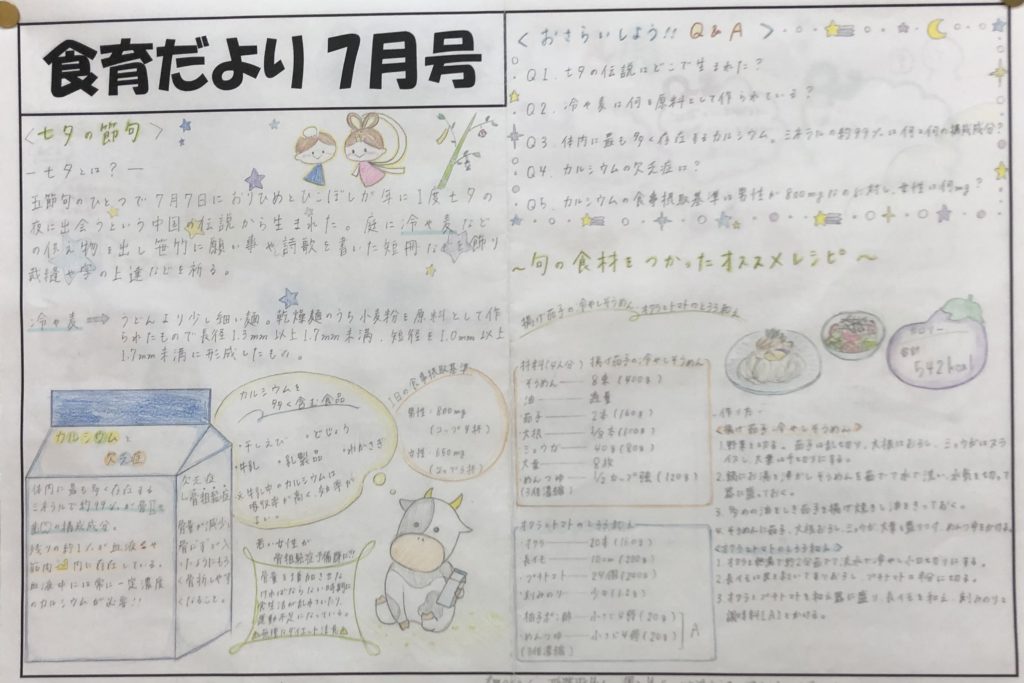 食育だより 7月号
〈七夕の節句〉
ー七夕とは?ー
五節句のひとつで7月7日におりひめとひこぼしが年に1度七夕の
夜に出会うという中国の伝説から生まれた。庭に冷や麦など
の供え物を出し笹竹に願い事や詩歌を書いた短冊などを飾り
裁縫や字の上達などを祈る。
冷や麦 ⇒ うどんより少し細い麺。乾燥麺のうち小麦粉を原料として作
られたもので長径1.3mm以上1.7mm未満、短径を1.0mm以上
1.7mm未満に形成したもの。
カルシウムと
欠乏症
体内に最も多く存在する
ミネラルで約99%が骨
や歯の構成成分。
残りの約1%が血液や
筋肉内に存在している。
血液中には常に一定濃度
のカルシウムが必要!!
欠乏症
└骨粗鬆症
骨量が減少し
骨にすが入っ
たようにもろく
骨折しやす
くなること。
カルシウムを
多く含む食品
・干しえび ・どじょう
・牛乳 ・乳製品 ・わかさぎ
※牛乳中のカルシウムは
吸収率が高く、効率が
よい。
1日の食事摂取基準
男性:800mg
(コップ4杯)
女性:650mg
(コップ3杯)
若い女性が
骨粗鬆症予備群に!?
骨量を増加させな
ければならない時期に
食生活が乱れていたり、
運動不足になっている!!
無理なダイエット注意
〈おさらいしよう!! Q&A〉
Q1. 七夕の伝説はどこで生まれた?
Q2. 冷や麦は何を原料として作られている?
Q3. 体内に最も多く存在するカルシウム。ミネラルの約99%は何と何の構成成分?
Q4. カルシウムの欠乏症は?
Q5. カルシウムの食事摂取基準は男性が800mgなのに対し、女性は何mg?
~旬の食材をつかったオススメレシピ~
揚げ茄子の冷やしそうめん
オクラとトマトのとろろ和え
カロリー
合計
542kcal
材料(4人分) 揚げ茄子の冷やしそうめん
そうめん――8束(400g)
油――適量
茄子――2本(160g)
大根――
ミョウガ――40g(80g)
大葉――8枚
めんつゆ――1/2カップ強(120g)
(3倍濃縮)
オクラとトマトのとろろ和え
・オクラ――20本(160g)
・長イモ――10cm(200g)
・プチトマト――24個(200g)
・刻みのり――少々(12g)
・柚子ポン酢――小さじ4弱(20g)
・めんつゆ――小さじ4弱(20g) A
(3倍濃縮)
-作り方-
〈揚げ茄子の冷やしそうめん〉
1. 野菜を切る。茄子は乱切り、大根はおろし、ミョウガはスラ
イスし、大葉は千切りにする。
2. 鍋にお湯を沸かしそうめんを茹でて水で洗い、水気を切って
器に盛っておく。
3. 多めの油をしき茄子を揚げ焼きし油をきっておく。
4. そうめんに茄子、大根おろし、ミョウガ、大葉を盛りつけ、めんつゆをかける。
〈オクラとトマトのとろろ和え〉
1. オクラを熱湯で約2分茹でて、流水で冷やし小口切りにする。
2. 長イモは皮をむいてすりおろし、プチトマトは半分に切る。
3. オクラとプチトマトを和え器に盛り、長イモを和え、刻みのりと
調味料[A]をかける。